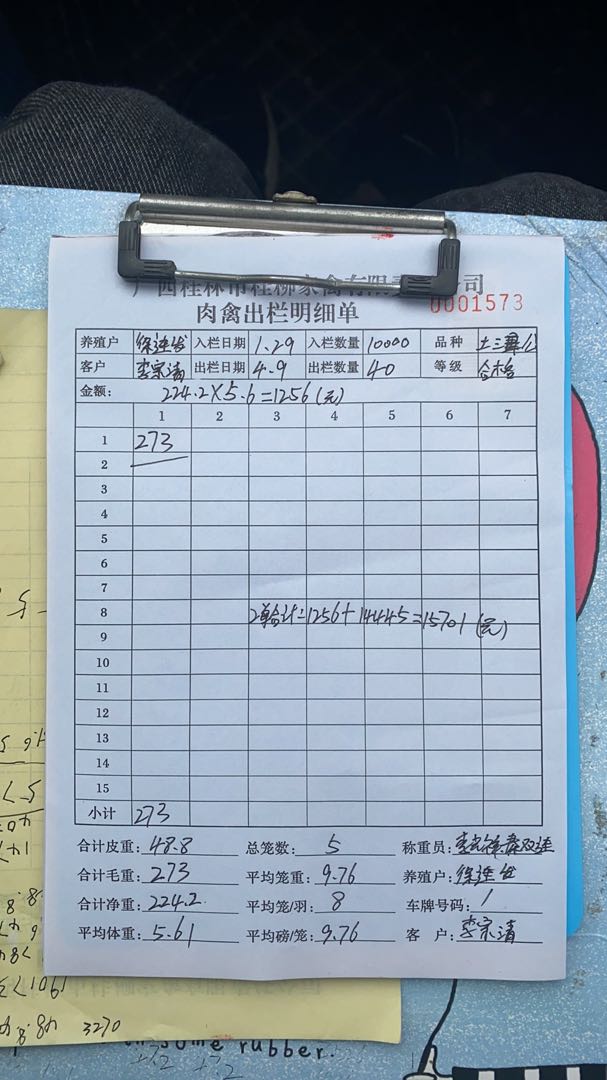 广西桂林市桂柳家禽有限责任公司
0001573
肉禽出栏明细单
养殖户 徐连发 入栏日期 1.29 入栏数量 10000 品种
客户 李宗清 出栏日期 4.9 出栏数量 40 等级 合格
金额: 224.2×5.6=1256(元)
1 2 3 4 5 6 7
1 273
2
3
4
5
6
7
8 2单合计=1256+14445=15701(元)
9
10
11
12
13
14
15
小计 273
合计皮重: 48.8 总笼数: 5 称重员:
合计毛重: 273 平均笼重: 9.76 养殖户: 徐连发
合计净重: 224.2 平均笼/羽: 8 车牌号码: 1
平均体重: 5.61 平均磅/笼: 9.76 客 户: 李宗清
3270
some rubber.